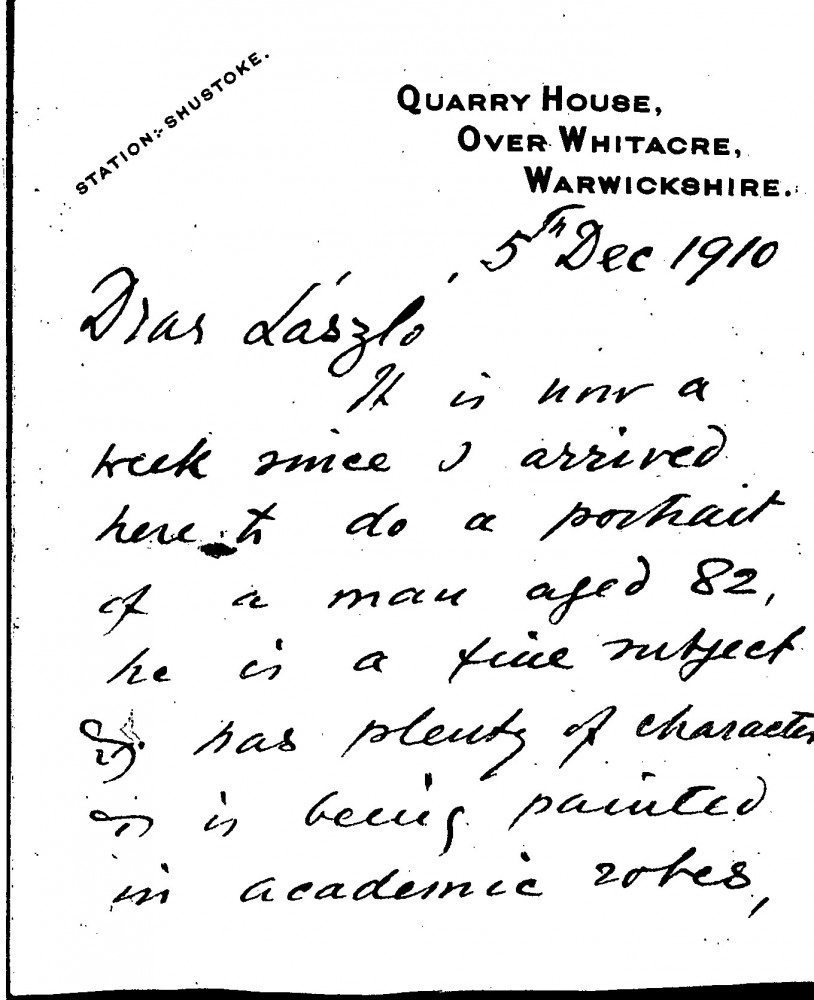 STATION:- SHUSTOKE.
QUARRY HOUSE,
OVER WHITACRE,
WARWICKSHIRE.
5th Dec 1910
Dear László,
It is now a
week since I arrived
here to do a portrait
of a man aged 82,
he is a fine subject
& has plenty of character
& is being painted
in academic robes,